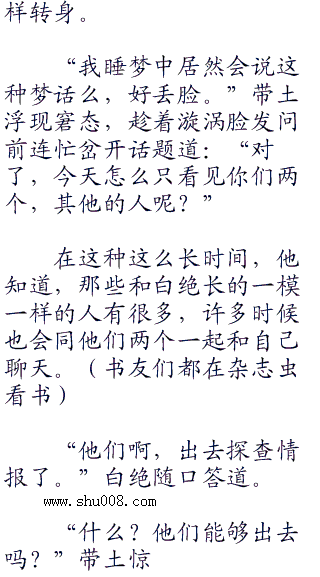 样转身。
“我睡梦中居然会说这
种梦话么，好丢脸。”带土
浮现窘态，趁着漩涡脸发问
前连忙岔开话题道：“对
了，今天怎么只看见你们两
个，其他的人呢？”
在这种这么长时间，他
知道，那些和白绝长的一模
一样的人有很多，许多时候
也会同他们两个一起和自己
聊天。（书友们都在杂志虫
看书）
“他们啊，出去探查情
报了。”白绝随口答道。
www.shu008.com
“什么？他们能够出去
吗？”带土惊